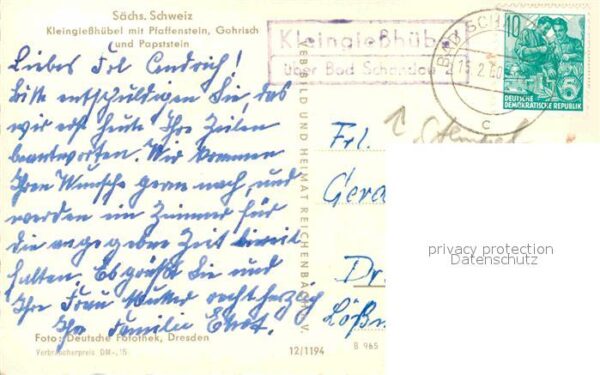 Sächs. Schweiz
Kleingießhübel mit Pfaffenstein, Gohrisch
und Papststein
Liebes Frl.
Bitte entschuldigen Sie, das
wir erst heute Ihre Zeilen
beantworten. Wir kommen
Ihren Wunsche gern nach, und
werden ein Zimmer für
die angegebene Zeit bereit
halten. Es grüßt Sie und
Ihre Frau Mutter recht herzlich
Ihre Familie
Foto: Deutsche Fotothek, Dresden
Verbraucherpreis DM -,15
12/1194
B 965
VEB BILD UND HEIMAT REICHENBACH I. V.
Kleingießhüb
über Bad Schandau
BAD SCH
15.2.60
c
10
DEUTSCHE
DEMOKRATISCHE REPUBLIK
Stempel
Frl.
Gera
Dr.
Lößn
privacy protection
Datenschutz